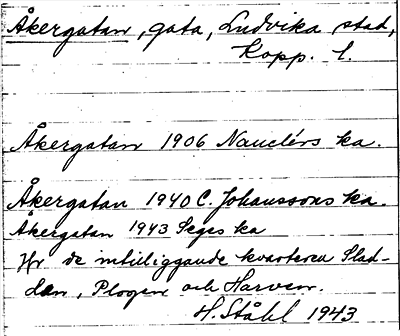 Åkergatan, gata, Ludvika stad,
Kopp. l.
Åkergatan 1906 Nauclérs ka.
Åkergatan 1940 C. Johanssons ka.
Åkergatan 1943 Seges ka
Jfr de intilliggande kvarteren Slad-
dan, Plogen och Harven.
H. Ståhl 1943